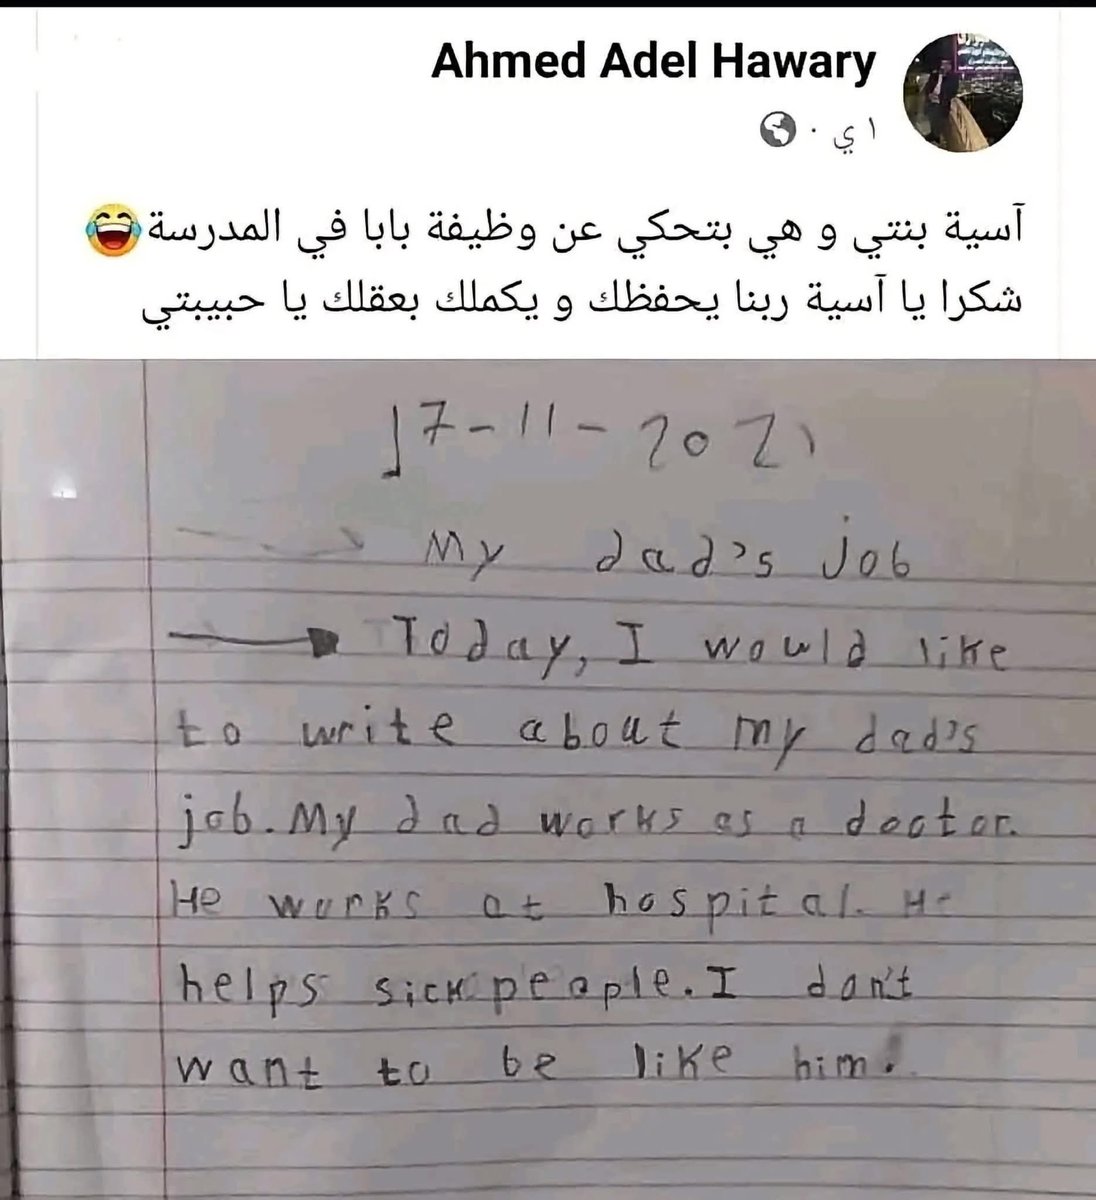 Ahmed Adel Hawary
١ ي ·
آسية بنتي و هي بتحكي عن وظيفة بابا في المدرسة😂
شكرا يا آسية ربنا يحفظك و يكملك بعقلك يا حبيبتي
17-11-2021
My dad's job
Today, I would like
to write about my dad's
job. My dad works as a doctor.
He works at hospital. He
helps sick people. I don't
want to be like him.